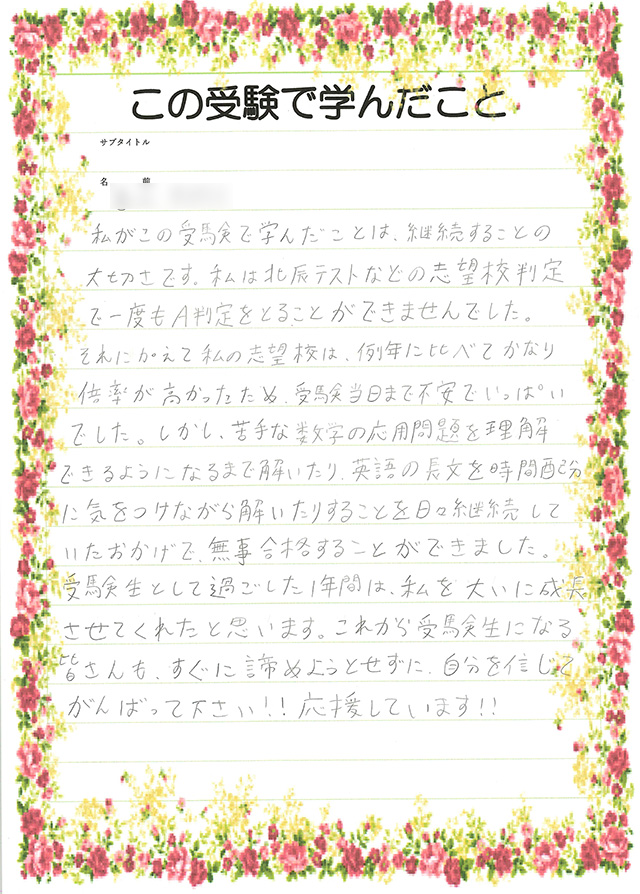 この受験で学んだこと
サブタイトル
名 前
私がこの受験で学んだことは、継続することの
大切さです。私は北辰テストなどの志望校判定
で一度もA判定をとることができませんでした。
それにかえて私の志望校は、例年に比べてかなり
倍率が高かったため、受験当日まで不安でいっぱい
でした。しかし、苦手な数学の応用問題を理解
できるようになるまで解いたり、英語の長文を時間配分
に気をつけながら解いたりすることを日々継続して
いたおかげで、無事合格することができました。
受験生として過ごした1年間は、私を大いに成長
させてくれたと思います。これから受験生になる
皆さんも、すぐに諦めようとせずに、自分を信じて
がんばって下さい!!応援しています!!